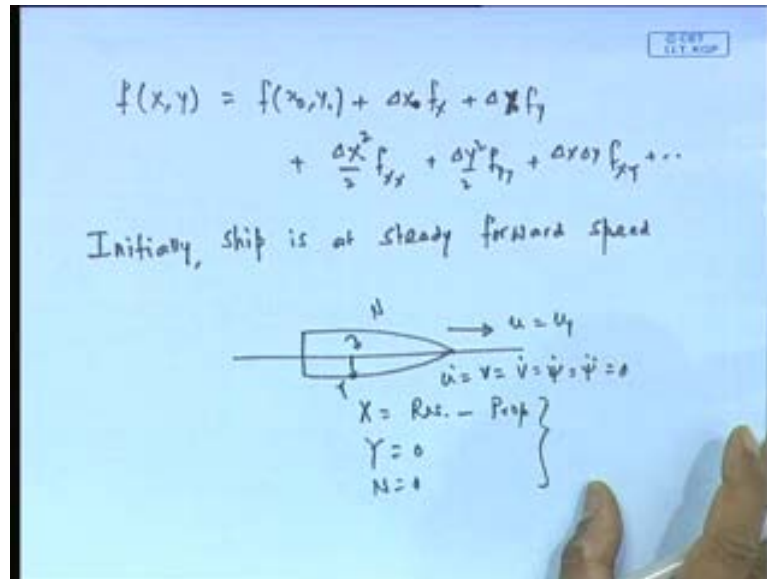 © CET
I.I.T. KGP
f(x,y) = f(x₀,y₀) + Δx₀ fₓ + Δy f_y
+ Δx²/2 fₓₓ + Δy²/2 f_yy + Δx Δy f_xy + ..
Initially, ship is at steady forward speed
N
u = u₁
Y
u̇ = v = v̇ = ψ̇ = ψ̈ = 0
X = Res. - Prop
Y = 0
N = 0